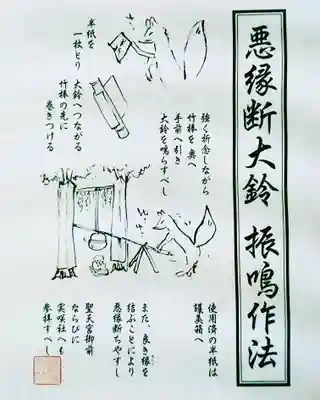 悪縁断大鈴 振鳴作法
半紙を
一枚とり
大鈴へつながる
竹棒の先に
巻きつける
強く祈念しながら
竹棒を奥へ
手前へ引き
大鈴を鳴らすべし
使用済の半紙は
護美箱へ
また、良き縁を
結ぶことにより
悪縁断ちやすし
聖天宮御前
ならびに
実咲社へも
参拝すべし